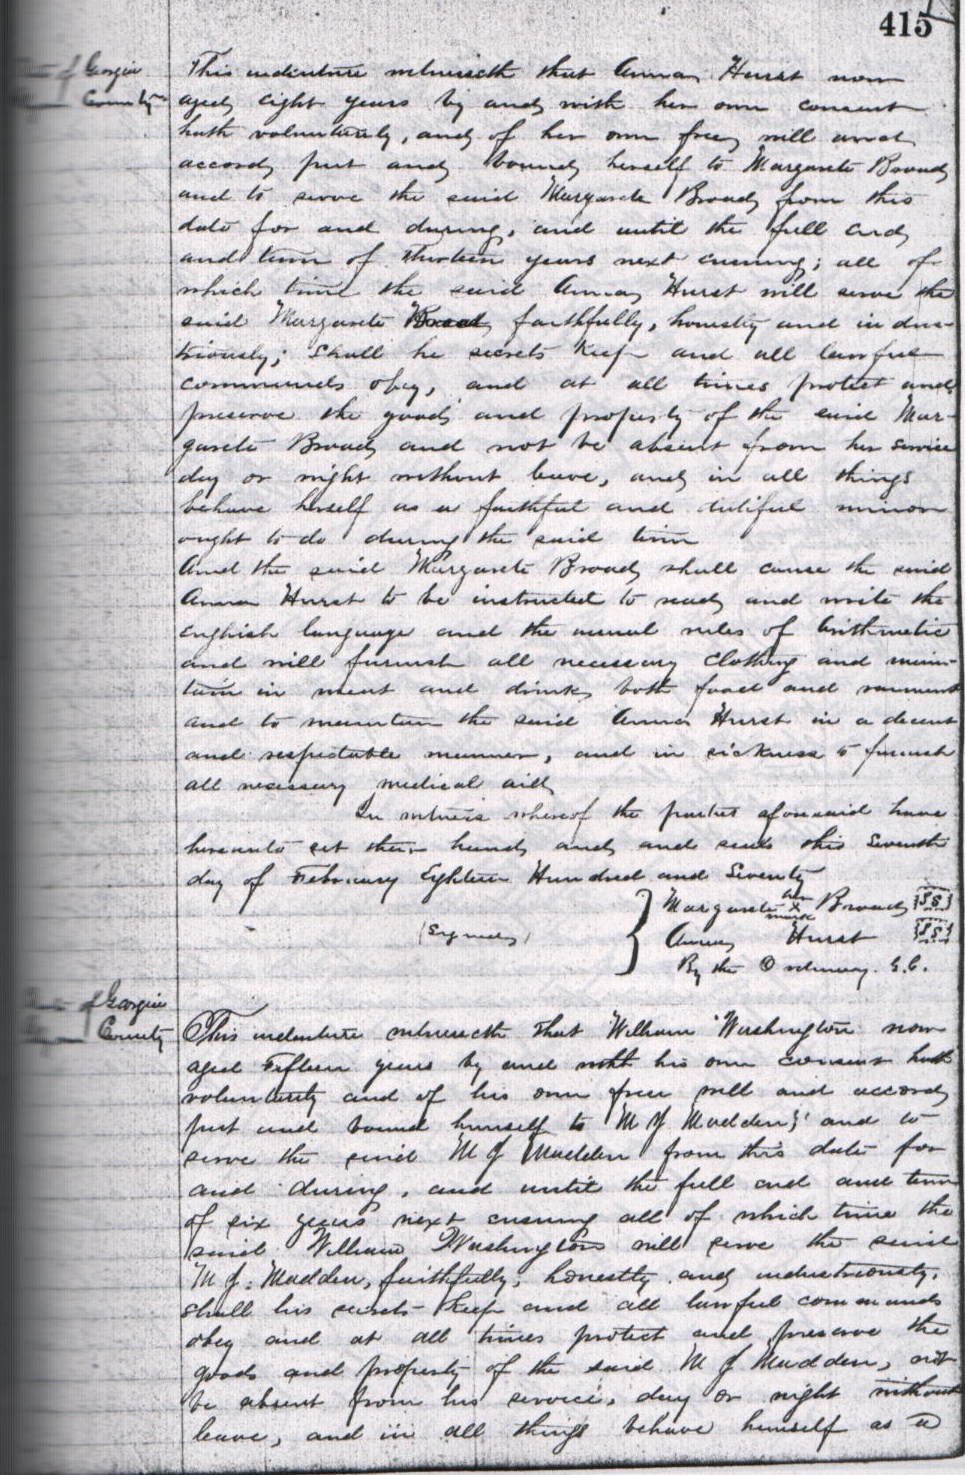 415
of Georgia
County
This indenture witnesseth that Anna Hurst now
aged eight years by and with her own consent
hath voluntarily, and of her own free will and
accord put and bound herself to Margarete Broady
and to serve the said Margarete Broady from this
date for and during, and until the full end
and term of thirteen years next ensuing; all of
which time the said Anna Hurst will serve the
said Margarete Broady faithfully, honestly and indus-
triously; shall he secrets keep and all lawful
commands obey, and at all times protect and
preserve the goods and property of the said Mar-
garete Broady and not be absent from her service
day or night without leave, and in all things
behave herself as a faithful and dutiful minor
ought to do during the said time
And the said Margarete Broady shall cause the said
Anna Hurst to be instructed to read and write the
english language and the usual rules of Arithmetic
and will furnish all necessary clothing and main-
tain in meat and drink, both food and raiment
and to maintain the said Anna Hurst in a decent
and respectable manner, and in sickness to furnish
all necessary medical aid,
In witness whereof the parties aforesaid have
hereunto set their hands and and seals this Seventh
day of February Eighteen Hundred and Seventy
Margarete her X mark Broady [SS]
(Signed) Anna Hurst [SS]
By the Ordinary. G.C.
of Georgia
County
This indenture witnesseth that William Washington now
aged Fifteen years by and with his own consent hath
voluntarily and of his own free will and accord
put and bound himself to M J Madden; and to
serve the said M J Madden from this date for
and during, and until the full end and term
of six years next ensuing all of which time the
said William Washington will serve the said
M J. Madden, faithfully, honestly and industriously,
shall his secrets keep and all lawful commands
obey and at all times protect and preserve the
goods and property of the said M J Madden, not
be absent from his service, day or night without
leave, and in all things behave himself as a